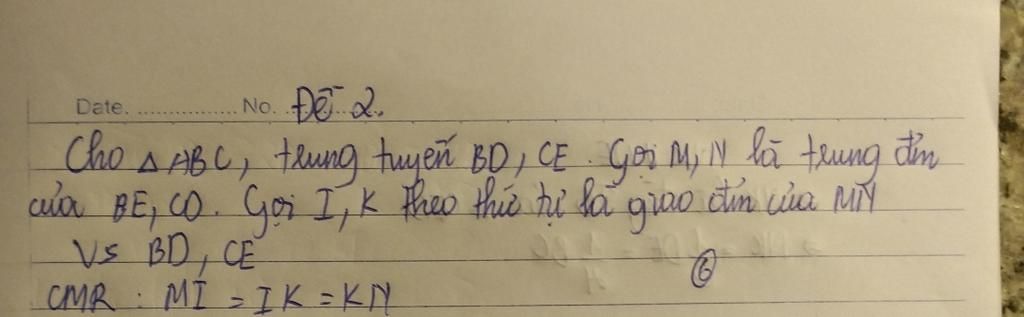 Date. ................ No. Đề 2.
Cho △ ABC, trung tuyến BD, CE. Gọi M, N là trung đm
của BE, CD. Gọi I, K theo thứ tự là giao đm của MN
Vs BD, CE
⑥
CMR : MI = IK = KN